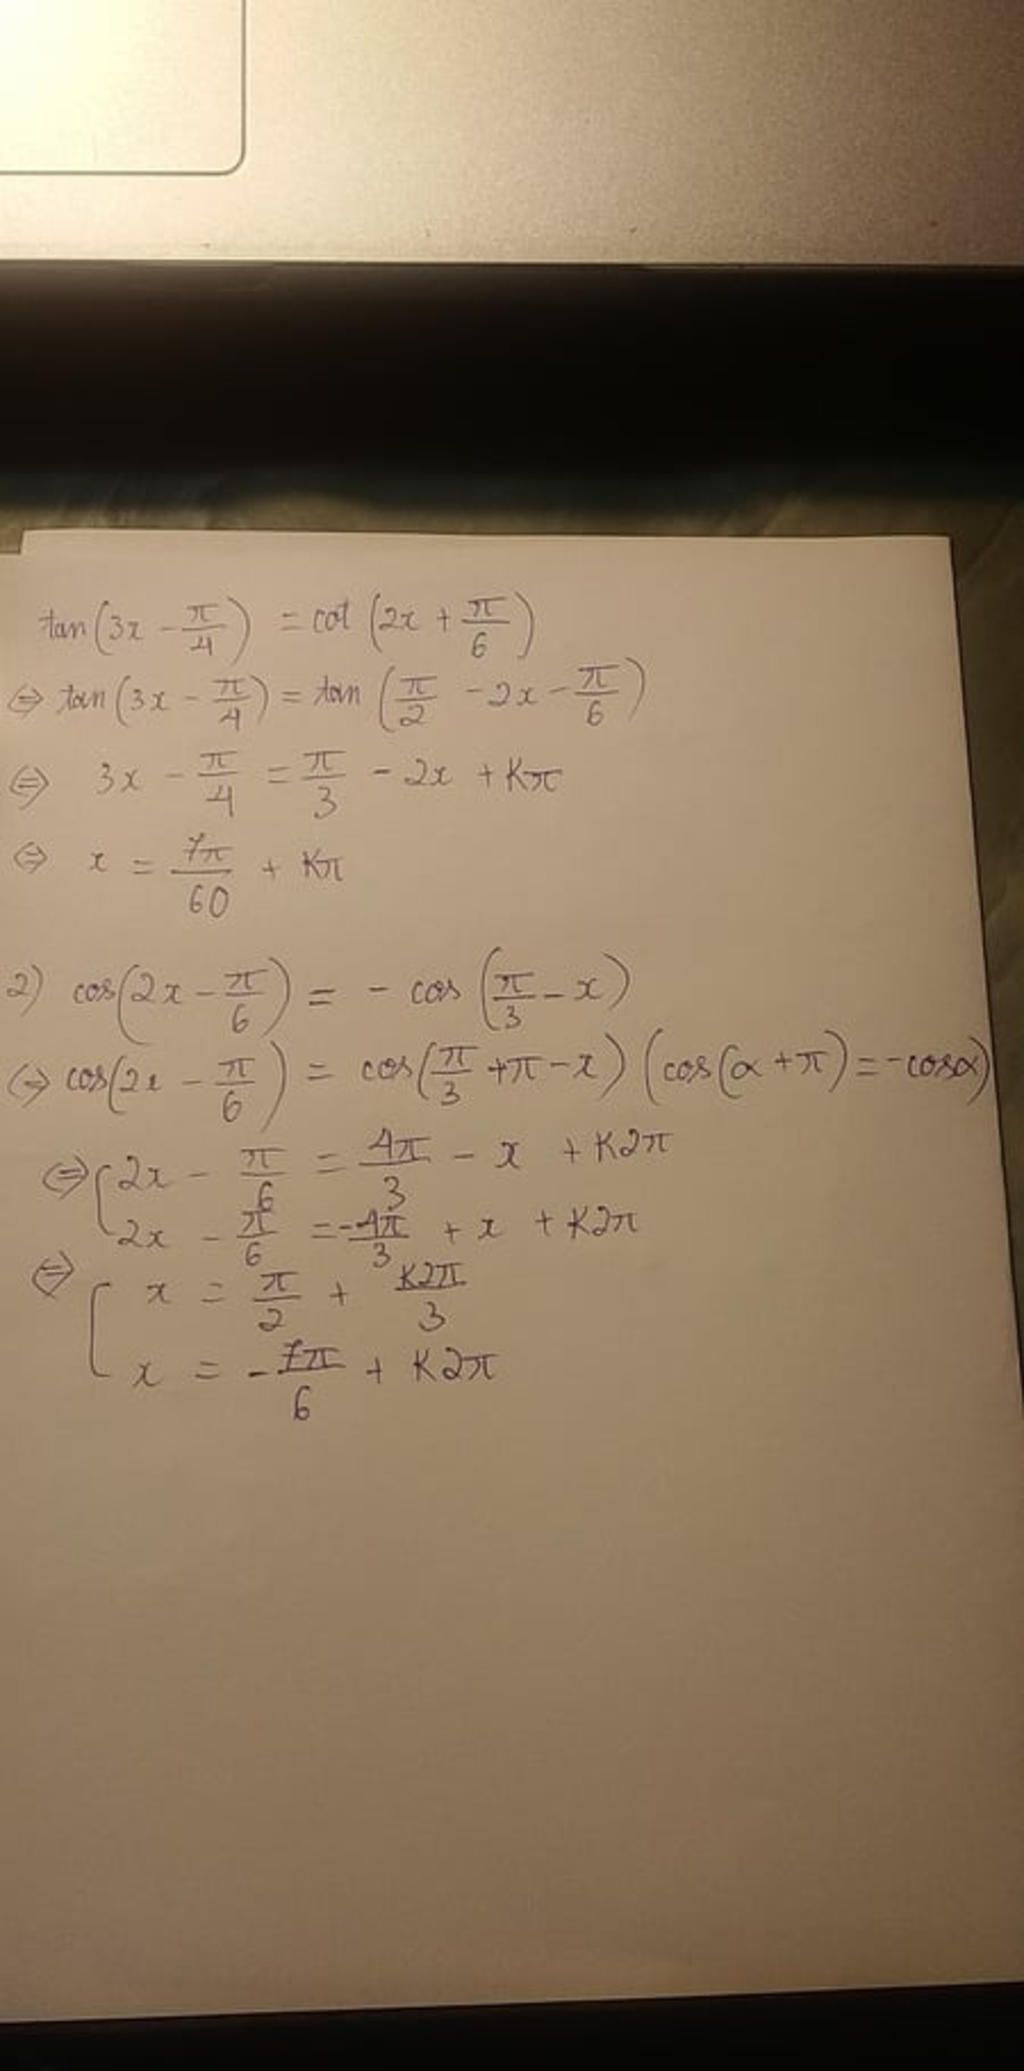 tan(3x - π/4) = cot(2x + π/6)
⇔ tan(3x - π/4) = tan(π/2 - 2x - π/6)
⇔ 3x - π/4 = π/3 - 2x + Kπ
⇔ x = 7π/60 + Kπ
2) cos(2x - π/6) = - cos(π/3 - x)
⇔ cos(2x - π/6) = cos(π/3 + π - x) (cos(α + π) = -cosα)
⇔ [ 2x - π/6 = 4π/3 - x + K2π
2x - π/6 = -4π/3 + x + K2π
⇔ [ x = π/2 + K2π/3
x = -7π/6 + K2π